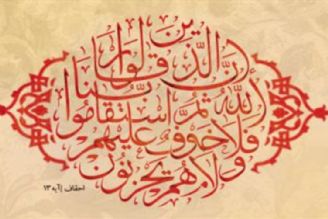 إِنَّ الَّذِينَ قَالُوا رَبُّنَا
اللَّهُ ثُمَّ اسْتَقَامُوا
فَلَا خَوْفٌ عَلَيْهِمْ
وَلَا هُمْ يَحْزَنُونَ
احقاف /آیه ۱۳